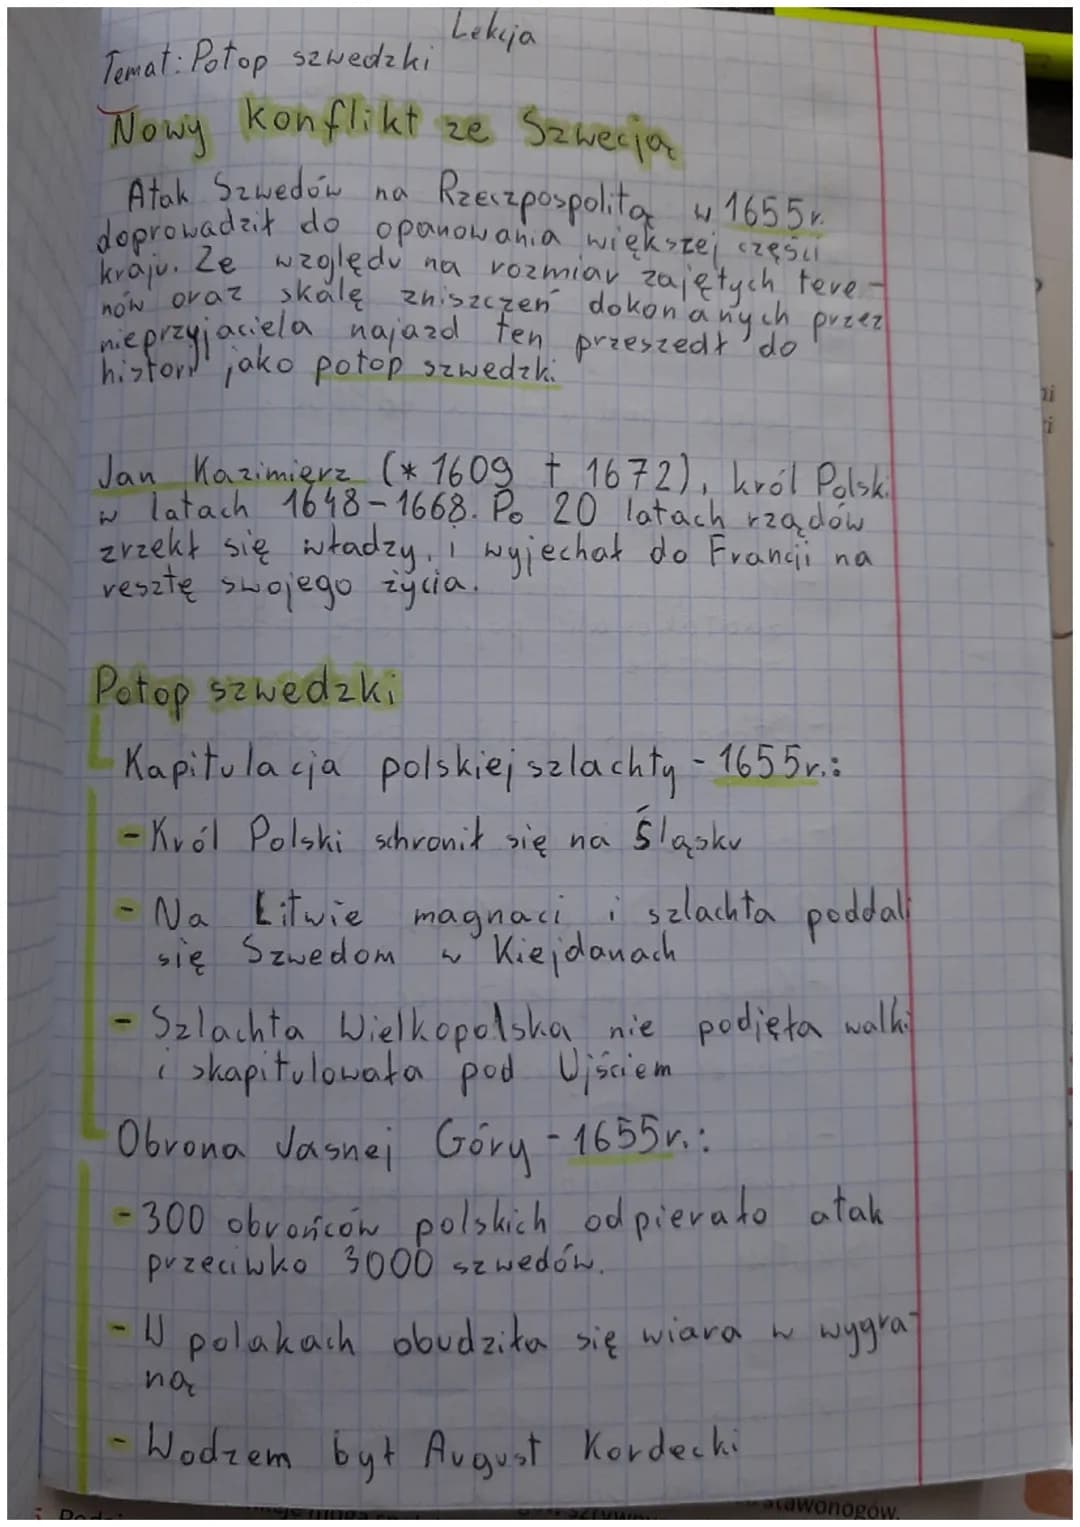 Lekcja
Temat: Potop szwedzki
Nowy konflikt ze Szwecją
Atak Szwedów na Rzeczpospolitą w 1655r.
doprowadził do opanowania większej części
kraju. Ze względu na rozmiar zajętych tere-
nów oraz skalę zniszczeń dokonanych przez
nieprzyjaciela najazd ten przeszedł do
historii jako potop szwedzki.
Jan Kazimierz (* 1609 † 1672), król Polski
w latach 1648-1668. Po 20 latach rządów
zrzekł się władzy, i wyjechał do Francji na
resztę swojego życia.
Potop szwedzki
Kapitulacja polskiej szlachty - 1655r.:
- Król Polski schronił się na Śląsku
- Na Litwie magnaci i szlachta poddali
się Szwedom w Kiejdanach
- Szlachta Wielkopolska nie podjęła walki
i skapitulowała pod Ujściem
Obrona Jasnej Góry - 1655r.:
- 300 obrońców polskich odpierało atak
przeciwko 3000 szwedów.
- W polakach obudziła się wiara w wygra-
ną
- Wodzem był August Kordecki
stawonogów.